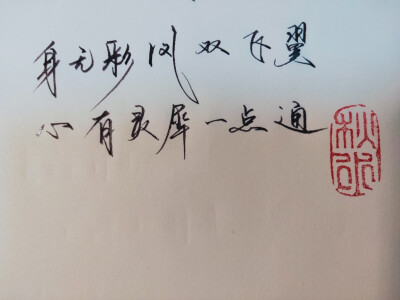 身无彩凤双飞翼
心有灵犀一点通